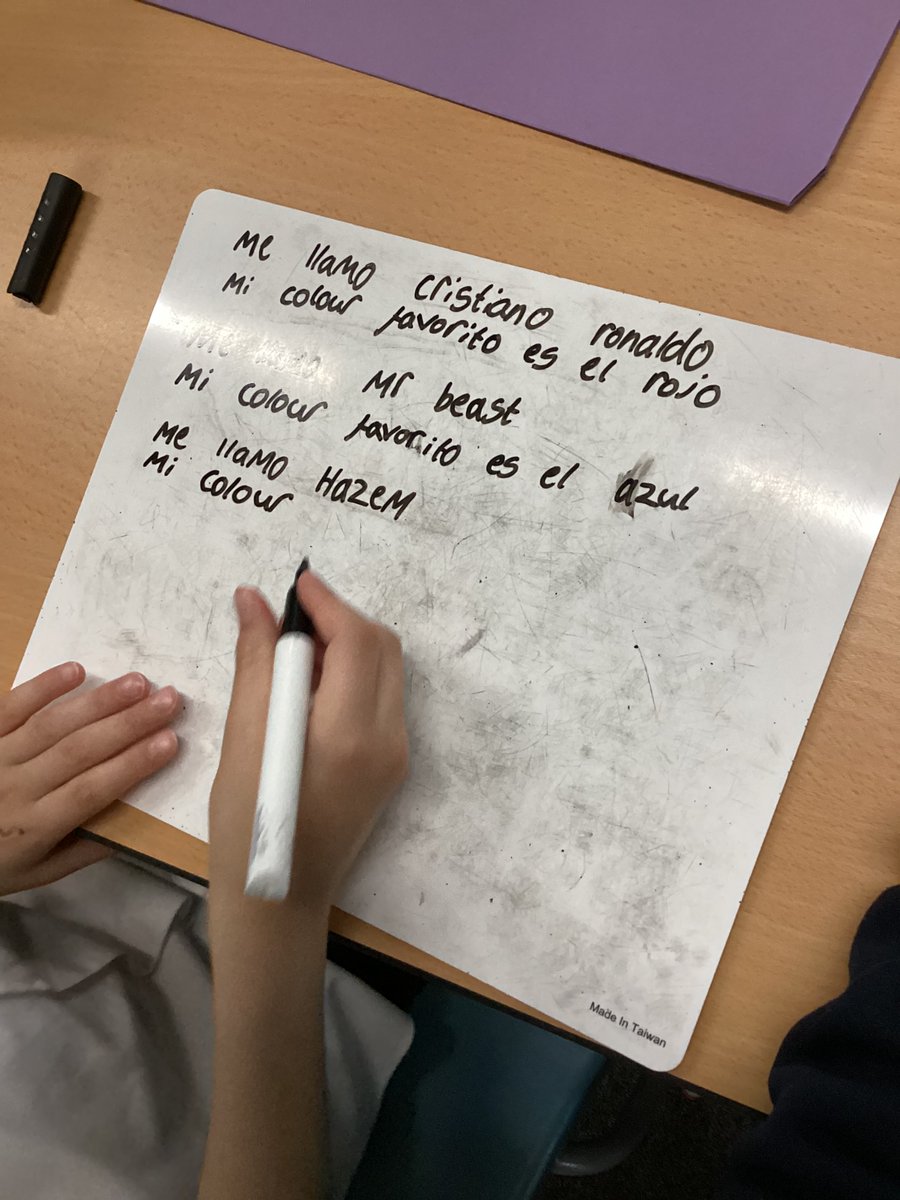 Me llamo cristiano ronaldo
Mi colour favorito es el rojo
Me llamo Mr beast
Mi colour favorito es el azul
Me llamo Hazem
Mi colour
Made In Taiwan